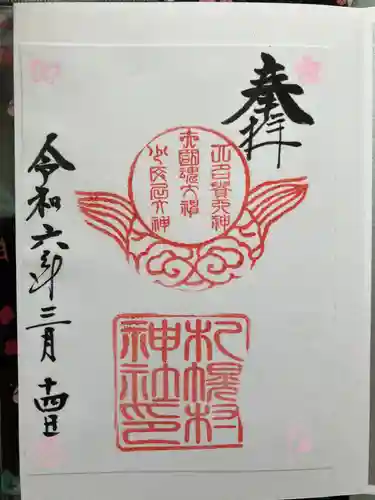 奉拝
大己貴大神
大國魂大神
少彦名大神
札幌村
神社印
令和六年三月十四日